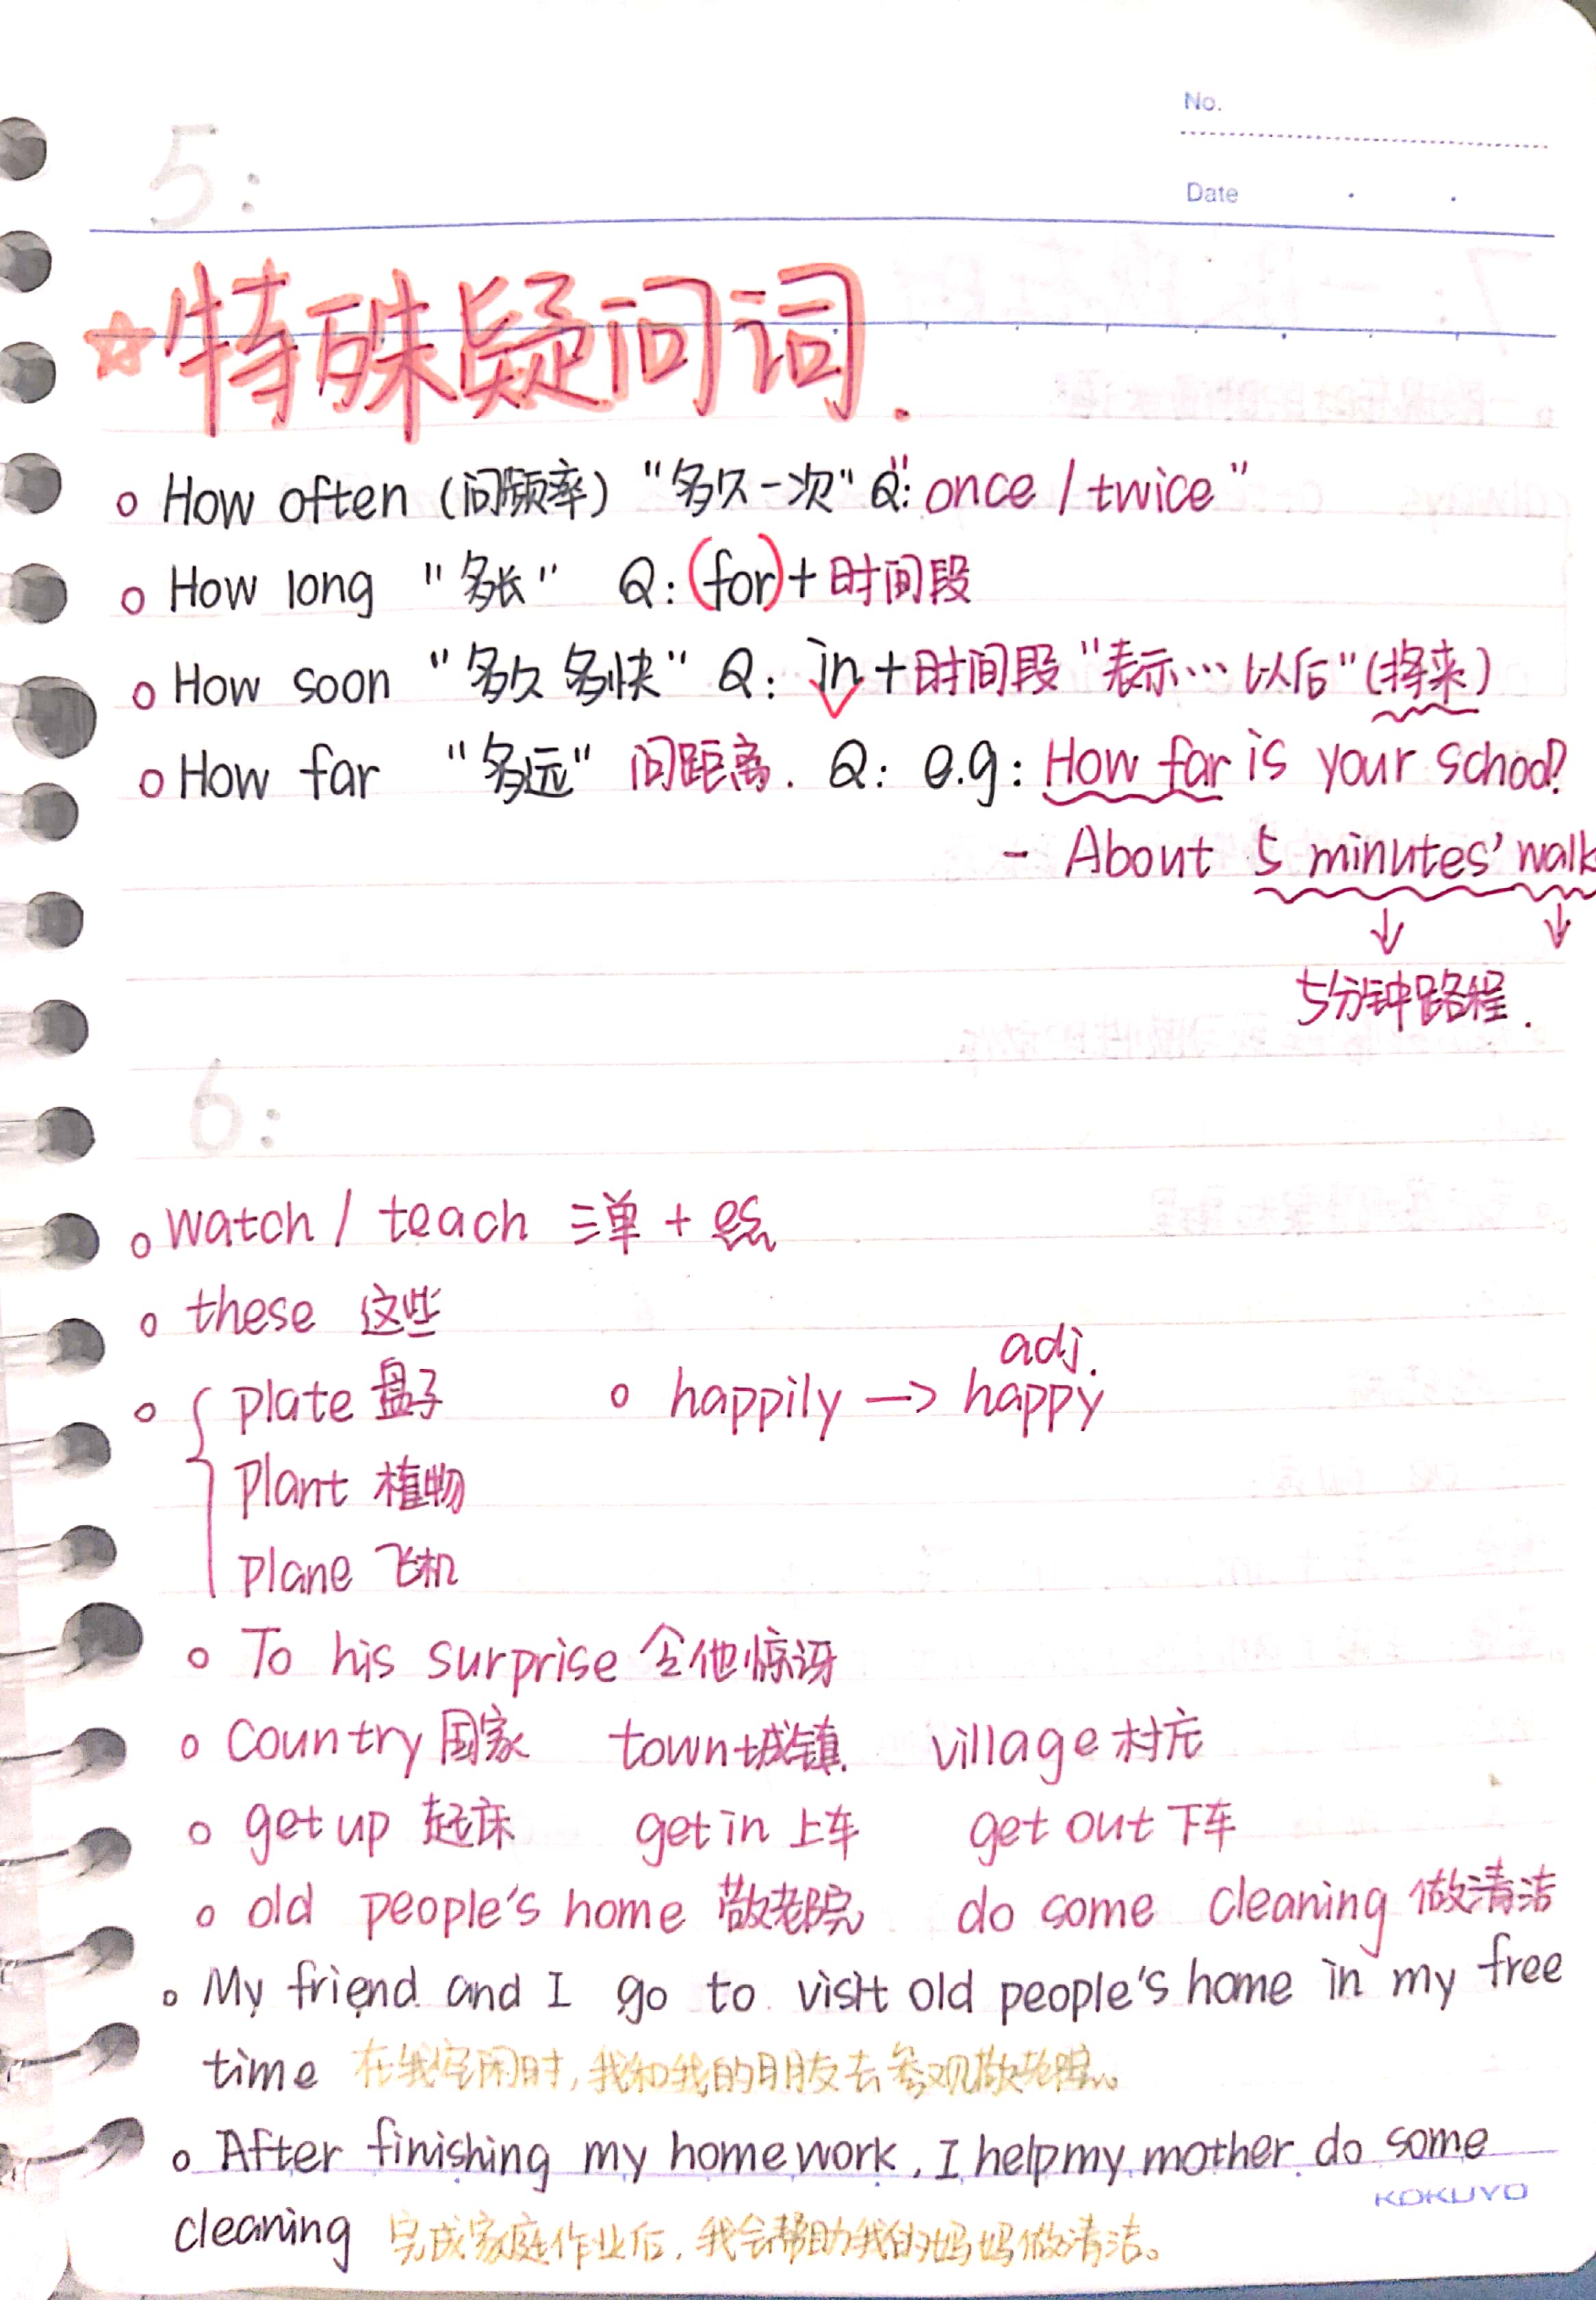 No.
5:
Date
☆特殊疑问词.
o How often (问频率) "多久一次" Q: "once / twice"
o How long "多长" Q: (for) + 时间段
o How soon "多久 多快" Q: in + 时间段 "表示…以后" (将来)
o How far "多远" 问距离. Q: e.g: How far is your school?
- About 5 minutes' walk
↓ ↓
5分钟路程.
6:
o watch / teach 三单 + es
o these 这些
adj.
o { plate 盘子 o happily → happy
plant 植物
plane 飞机
o To his surprise 令他惊讶
o Country 国家 town 城镇. village 村庄
o get up 起床 get in 上车 get out 下车
o old people's home 敬老院 do some cleaning 做清洁
o My friend and I go to visit old people's home in my free
time 在我空闲时,我和我的朋友去参观敬老院。
o After finishing my homework, I help my mother do some
KOKUYO
cleaning 完成家庭作业后,我会帮助我的妈妈做清洁。